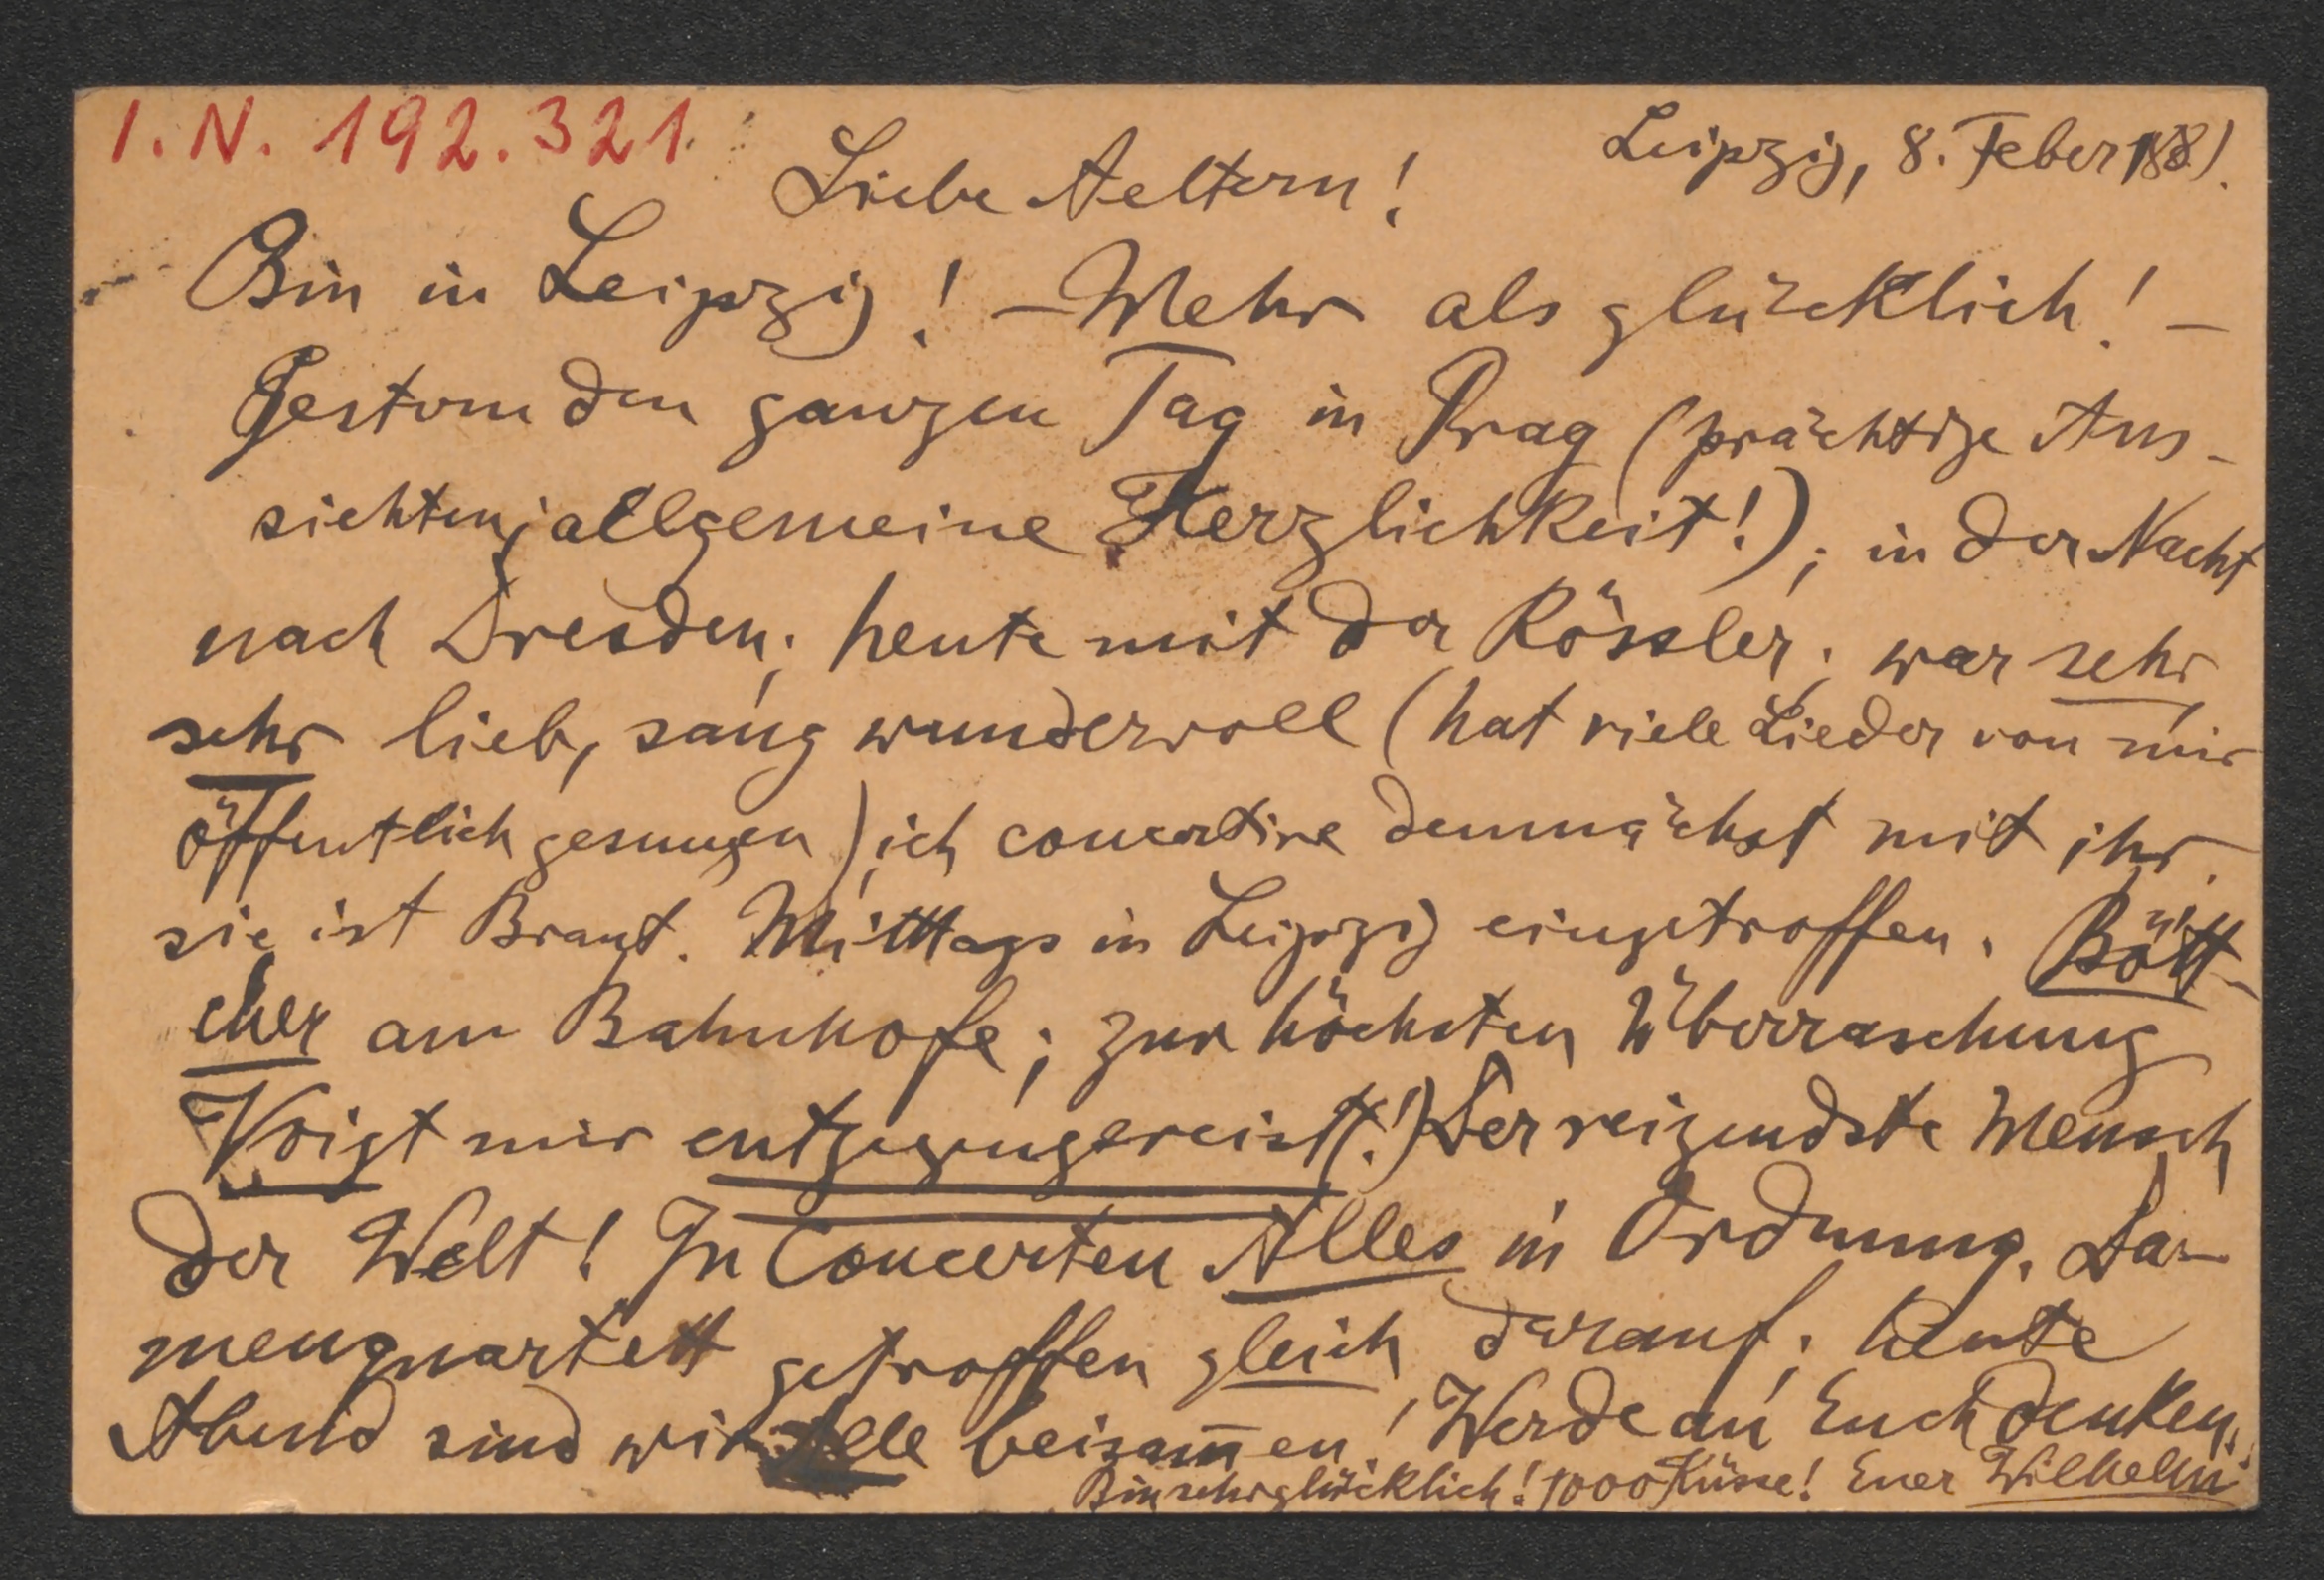 I. N. 192.321.
Leipzig, 8. Feber 1881.
Liebe Aeltern!
Bin in Leipzig! – Mehr als glücklich! –
Gestern den ganzen Tag in Prag (prächtige Aus-
sichten; allgemeine Herzlichkeit!); in der Nacht
nach Dresden; heute mit der Rössler; war sehr,
sehr lieb, sang wundervoll (hat viele Lieder von mir
öffentlich gesungen), ich concertire demnächst mit ihr,
sie ist Braut. Mittags in Leipzig eingetroffen. Bött-
cher am Bahnhofe; zur höchsten Überraschung
Voigt mir entgegengereist(!) Der reizendste Mensch
der Welt! In Concerten Alles in Ordnung. Da-
menquartett getroffen gleich darauf; heute
Abend sind wir Alle beisam̅en! Werde an Euch denken.
Bin sehr glücklich! 1000 Küsse! Euer Wilhelm